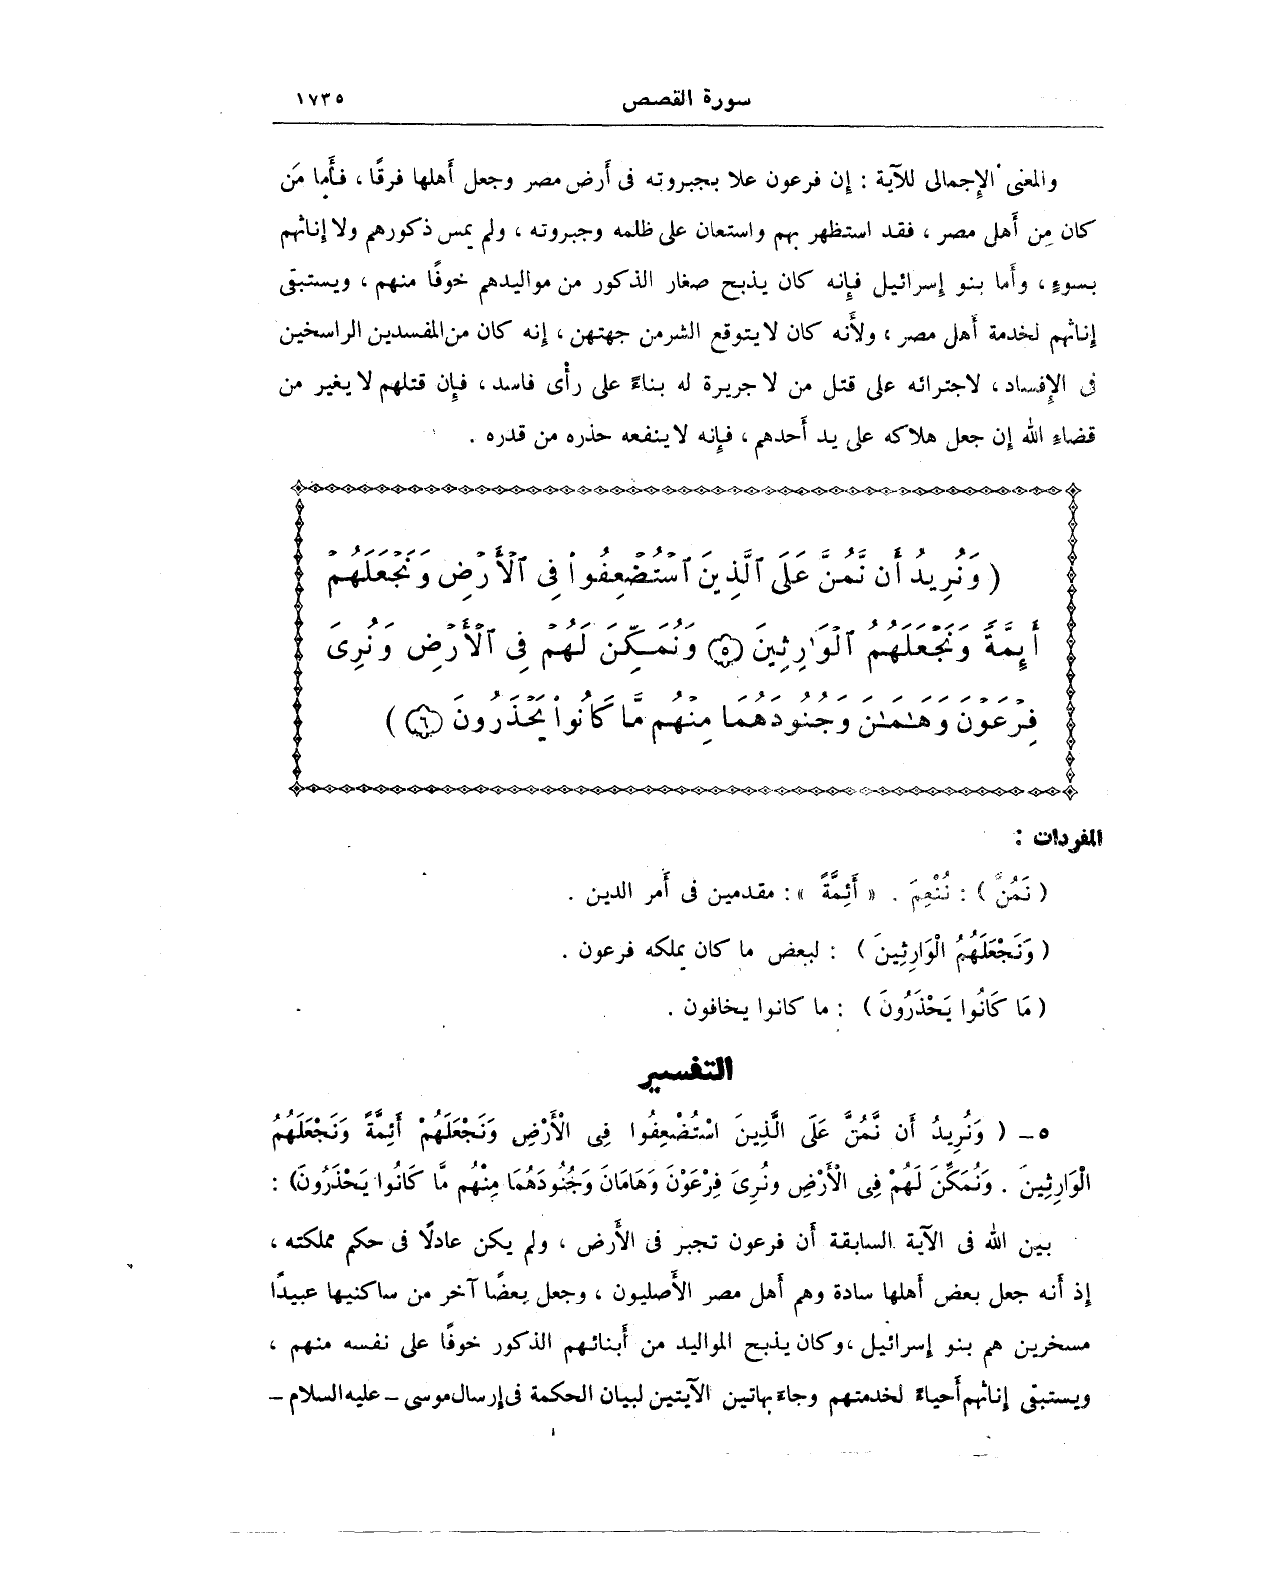 سورة القصص ١٧٣٥
والمعنى الإجمالى للآية : إن فرعون علا بجبروته فى أرض مصر وجعل أهلها فرقًا ، فأما مَن
كان مِن أهل مصر ، فقد استظهر بهم واستعان على ظلمه وجبروته ، ولم يمس ذكورهم ولا إناثهم
بسوءٍ ، وأما بنو إسرائيل فإنه كان يذبح صغار الذكور من مواليدهم خوفًا منهم ، ويستبقى
إناثهم لخدمة أهل مصر ، ولأنه كان لا يتوقع الشر من جهتهن ، إنه كان من المفسدين الراسخين
فى الإفساد ، لاجترائه على قتل من لا جريرة له بناءً على رأى فاسد ، فإن قتلهم لا يغير من
قضاءِ الله إن جعل هلاكه على يد أحدهم ، فإنه لا ينفعه حذره من قدره .
( وَنُرِيدُ أَن نَّمُنَّ عَلَى ٱلَّذِينَ ٱسْتُضْعِفُوا۟ فِى ٱلْأَرْضِ وَنَجْعَلَهُمْ
أَئِمَّةً وَنَجْعَلَهُمُ ٱلْوَٰرِثِينَ ٥ وَنُمَكِّنَ لَهُمْ فِى ٱلْأَرْضِ وَنُرِىَ
فِرْعَوْنَ وَهَـٰمَـٰنَ وَجُنُودَهُمَا مِنْهُم مَّا كَانُوا۟ يَحْذَرُونَ ٦ )
المفردات :
( نَمُنَّ ) : نُنْعِمَ . « أَئِمَّةً » : مقدمين فى أمر الدين .
( وَنَجْعَلَهُمُ الْوَارِثِينَ ) : لبعض ما كان يملكه فرعون .
( مَا كَانُوا يَحْذَرُونَ ) : ما كانوا يخافون .
التفسير
٥ - ( وَنُرِيدُ أَن نَّمُنَّ عَلَى الَّذِينَ اسْتُضْعِفُوا فِى الْأَرْضِ وَنَجْعَلَهُمْ أَئِمَّةً وَنَجْعَلَهُمُ
الْوَارِثِينَ . وَنُمَكِّنَ لَهُمْ فِى الْأَرْضِ ونُرِىَ فِرْعَوْنَ وَهَامَانَ وَجُنُودَهُمَا مِنْهُم مَّا كَانُوا يَحْذَرُونَ) :
بين الله فى الآية السابقة أن فرعون تجبر فى الأرض ، ولم يكن عادلًا فى حكم مملكته ،
إذ أنه جعل بعض أهلها سادة وهم أهل مصر الأصليون ، وجعل بعضًا آخر من ساكنيها عبيدًا
مسخرين هم بنو إسرائيل ، وكان يذبح المواليد من أبنائهم الذكور خوفًا على نفسه منهم ،
ويستبقى إناثهم أحياءً لخدمتهم وجاءَ بهاتين الآيتين لبيان الحكمة فى إرسال موسى - عليه السلام -